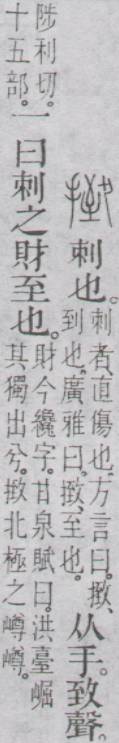 㨖 刺也。刺者、直傷也。方言曰。㨖、到也。廣雅曰。㨖、至也。从手。致聲。
陟利切。十五部。一曰刺之財至也。財今纔字。甘泉賦曰。洪臺崛其獨出兮。㨖北極之嶟嶟。